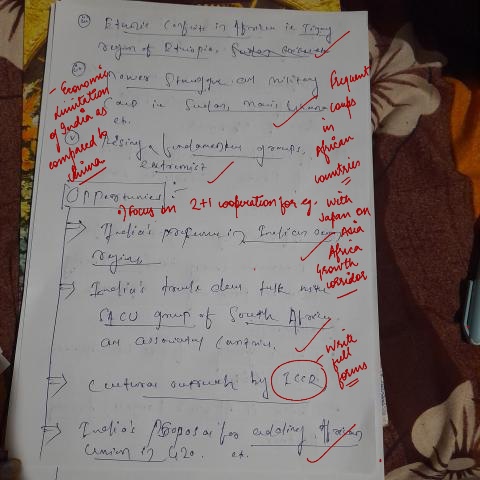 Ethnic Conflicts in African ie Tigray
region of Ethiopia,
Power Struggle and military
Coup in Sudan, Mali,
etc.
Rising fundamentalist groups,
extremist
- Economic
Limitation
of India as
compared to
China
Frequent
coups
in
African
countries
Opportunities :-
Focus on 2+1 cooperation for eg. with
Japan on
Asia
Africa
Growth
corridor
⇒ India's presence in Indian ocean
region
⇒ India's trade deal talk with
SACU group of South Africa
an associating countries.
⇒ Cultural outreach by ICCR
- Write
full
forms
⇒ India's proposal for adding African
Union in G20. etc.